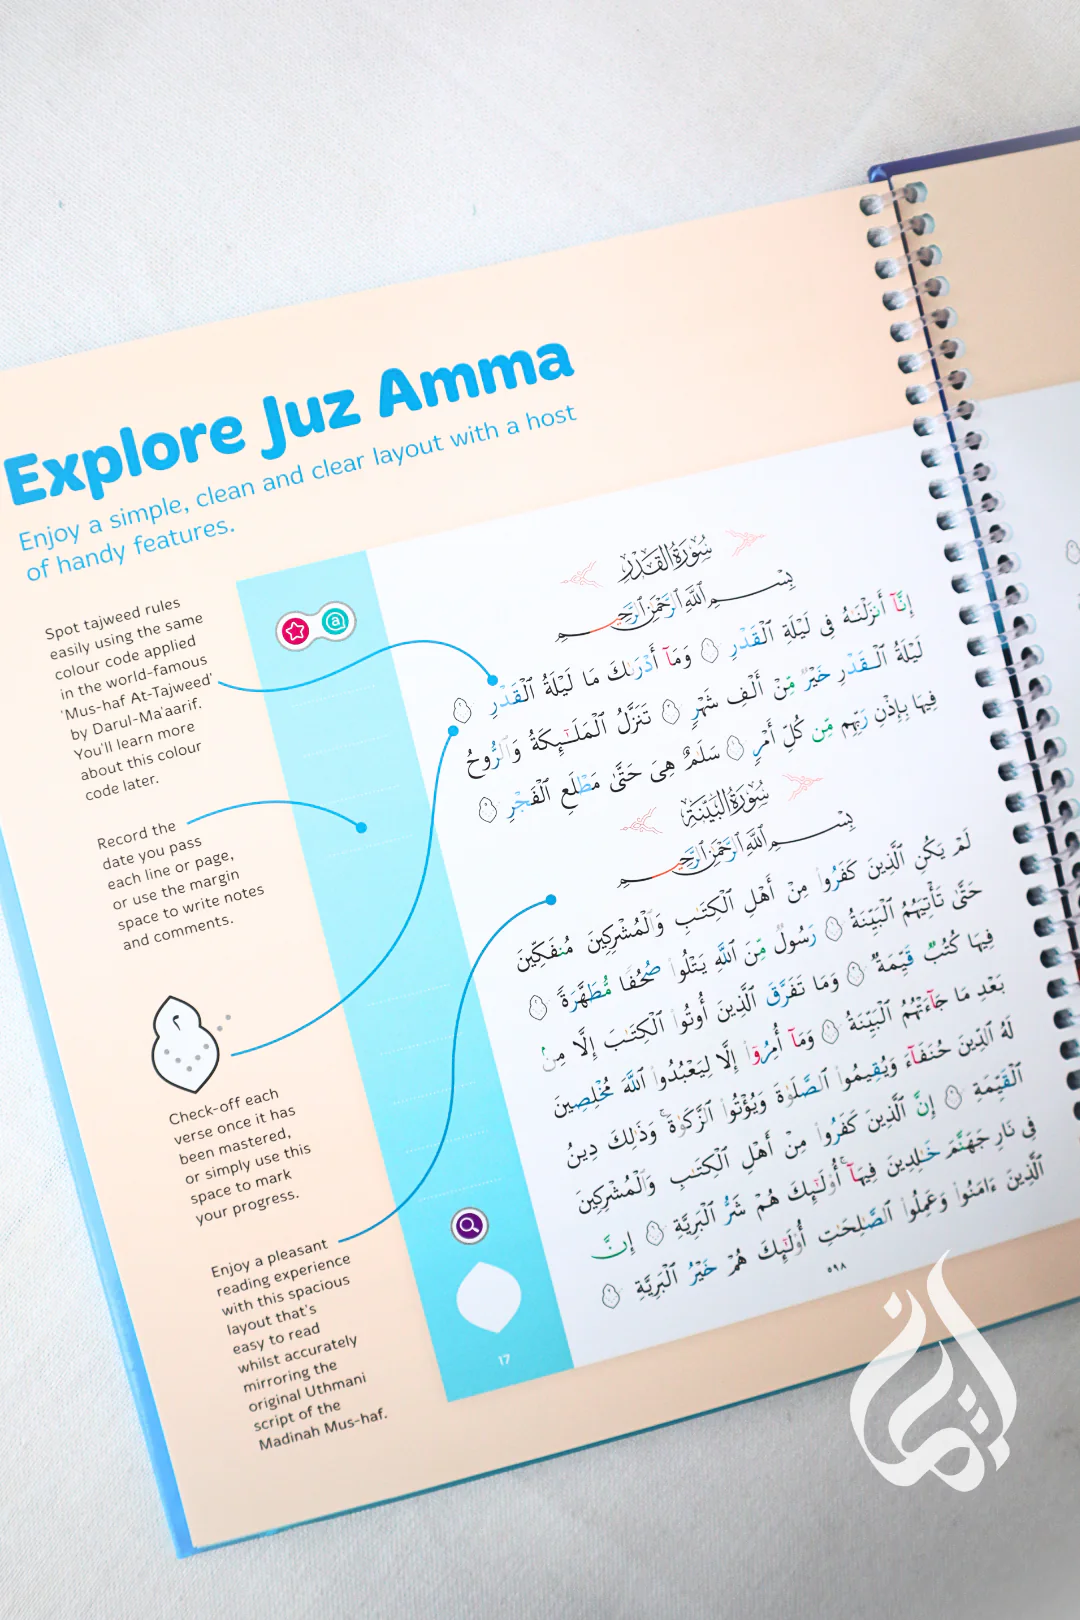 Explore Juz Amma
Enjoy a simple, clean and clear layout with a host
of handy features.
Spot tajweed rules
easily using the same
colour code applied
in the world-famous
'Mus-haf At-Tajweed'
by Darul-Ma'aarif.
You'll learn more
about this colour
code later.
Record the
date you pass
each line or page,
or use the margin
space to write notes
and comments.
٢
Check-off each
verse once it has
been mastered,
or simply use this
space to mark
your progress.
Enjoy a pleasant
reading experience
with this spacious
layout that's
easy to read
whilst accurately
mirroring the
original Uthmani
script of the
Madinah Mus-haf.
@
17
سُورَةُ القَدْرِ
بِسْمِ ٱللَّهِ ٱلرَّحْمَٰنِ ٱلرَّحِيمِ
إِنَّآ أَنزَلْنَٰهُ فِى لَيْلَةِ ٱلْقَدْرِ وَمَآ أَدْرَىٰكَ مَا لَيْلَةُ ٱلْقَدْرِ
لَيْلَةُ ٱلْقَدْرِ خَيْرٌ مِّنْ أَلْفِ شَهْرٍ تَنَزَّلُ ٱلْمَلَٰٓئِكَةُ وَٱلرُّوحُ
فِيهَا بِإِذْنِ رَبِّهِم مِّن كُلِّ أَمْرٍ سَلَٰمٌ هِىَ حَتَّىٰ مَطْلَعِ ٱلْفَجْرِ
سُورَةُ البَيِّنَةِ
بِسْمِ ٱللَّهِ ٱلرَّحْمَٰنِ ٱلرَّحِيمِ
لَمْ يَكُنِ ٱلَّذِينَ كَفَرُوا۟ مِنْ أَهْلِ ٱلْكِتَٰبِ وَٱلْمُشْرِكِينَ مُنفَكِّينَ
حَتَّىٰ تَأْتِيَهُمُ ٱلْبَيِّنَةُ رَسُولٌ مِّنَ ٱللَّهِ يَتْلُوا۟ صُحُفًا مُّطَهَّرَةً
فِيهَا كُتُبٌ قَيِّمَةٌ وَمَا تَفَرَّقَ ٱلَّذِينَ أُوتُوا۟ ٱلْكِتَٰبَ إِلَّا مِنۢ
بَعْدِ مَا جَآءَتْهُمُ ٱلْبَيِّنَةُ وَمَآ أُمِرُوٓا۟ إِلَّا لِيَعْبُدُوا۟ ٱللَّهَ مُخْلِصِينَ
لَهُ ٱلدِّينَ حُنَفَآءَ وَيُقِيمُوا۟ ٱلصَّلَوٰةَ وَيُؤْتُوا۟ ٱلزَّكَوٰةَ ۚ وَذَٰلِكَ دِينُ
ٱلْقَيِّمَةِ إِنَّ ٱلَّذِينَ كَفَرُوا۟ مِنْ أَهْلِ ٱلْكِتَٰبِ وَٱلْمُشْرِكِينَ
فِى نَارِ جَهَنَّمَ خَٰلِدِينَ فِيهَآ ۚ أُو۟لَٰٓئِكَ هُمْ شَرُّ ٱلْبَرِيَّةِ إِنَّ
ٱلَّذِينَ ءَامَنُوا۟ وَعَمِلُوا۟ ٱلصَّٰلِحَٰتِ أُو۟لَٰٓئِكَ هُمْ خَيْرُ ٱلْبَرِيَّةِ
٥٩٨